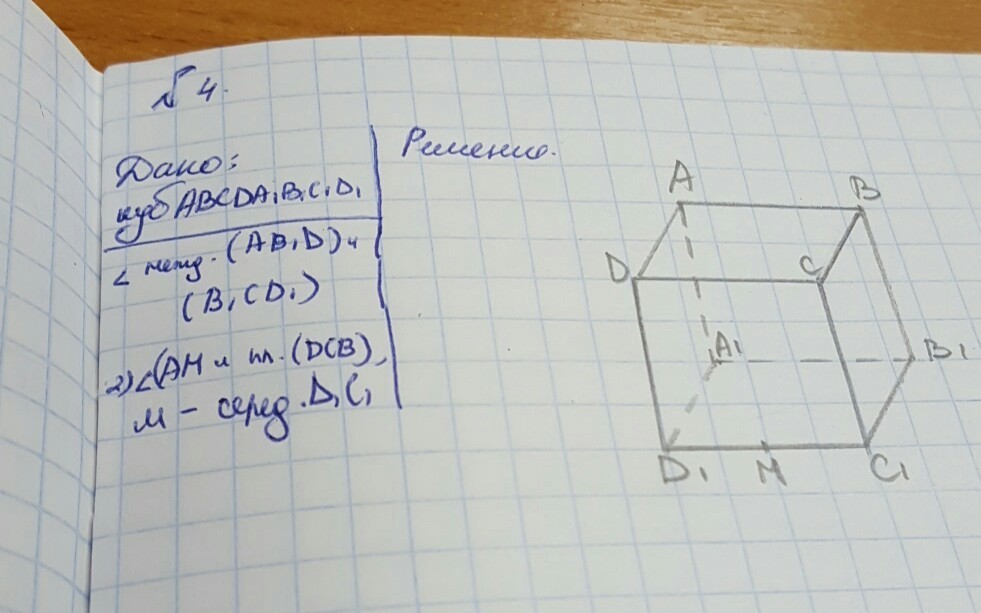 № 4.
Дано:
куб ABCDA₁B₁C₁D₁
Решение.
∠ межд. (AB₁D) и
(B₁CD₁)
2) ∠(AM и пл. (DCB),
M - серед. D₁C₁
A
B
D
C
A₁
B₁
D₁
M
C₁